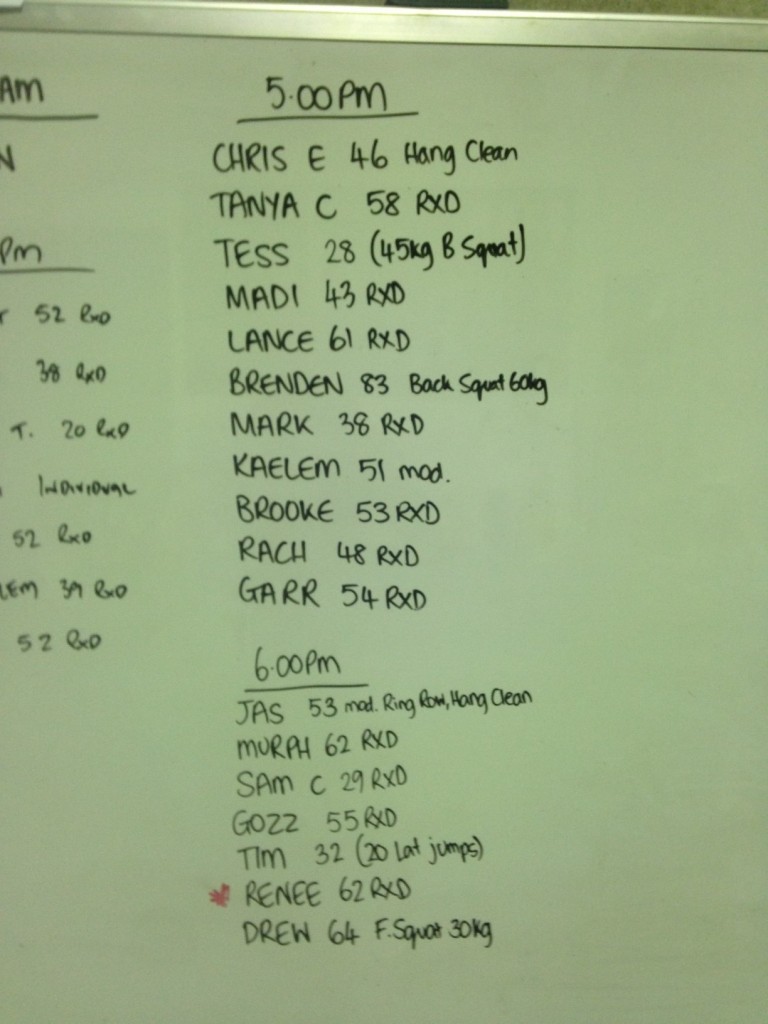 AM
N
Pm
52 RxD
38 RxD
T. 20 RxD
INDIVIDUAL
52 RxD
LEM 39 RxD
52 RxD
5.00PM
CHRIS E 46 Hang Clean
TANYA C 58 RXD
TESS 28 (45kg B Squat)
MADI 43 RXD
LANCE 61 RXD
BRENDEN 83 Back Squat 60kg
MARK 38 RXD
KAELEM 51 mod.
BROOKE 53 RXD
RACH 48 RXD
GARR 54 RXD
6.00Pm
JAS 53 mod. Ring Row, Hang Clean
MURPH 62 RXD
SAM C 29 RXD
GOZZ 55 RXD
TIM 32 (20 Lat jumps)
* RENEE 62 RXD
DREW 64 F. Squat 30kg